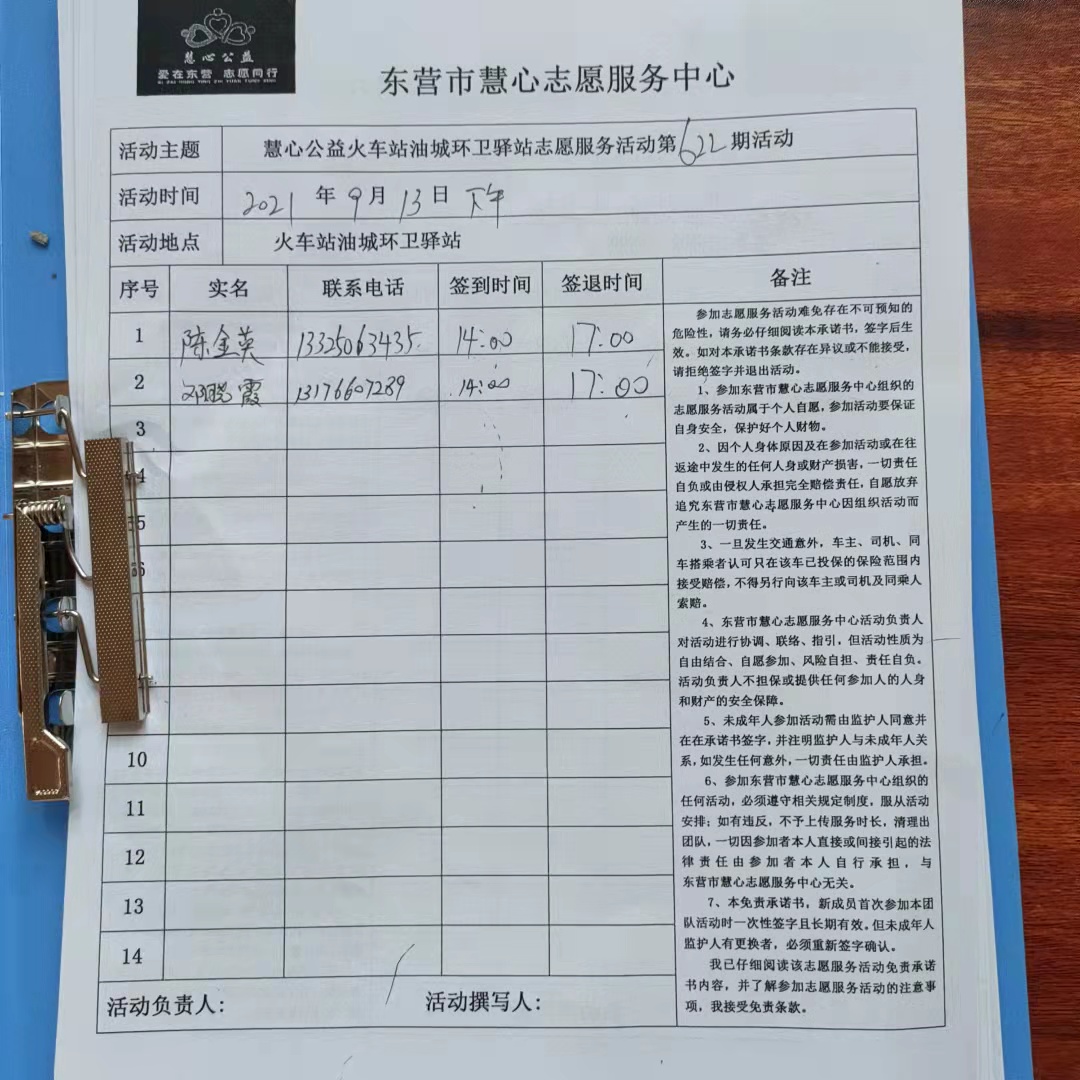 慧心公益
爱在东营 志愿同行
东营市慧心志愿服务中心
活动主题 慧心公益火车站油城环卫驿站志愿服务活动第622期活动
活动时间 2021 年 9 月 13 日 下午
活动地点 火车站油城环卫驿站
序号 实名 联系电话 签到时间 签退时间 备注
1 陈金英 13325063435 14:00 17:00
2 邓晓霞 13176607289 14:00 17:00
3
4
5
6
10
11
12
13
14
参加志愿服务活动难免存在不可预知的
危险性，请务必仔细阅读本承诺书，签字后生
效。如对本承诺书条款存在异议或不能接受，
请拒绝签字并退出活动。
1、参加东营市慧心志愿服务中心组织的
志愿服务活动属于个人自愿，参加活动要保证
自身安全，保护好个人财物。
2、因个人身体原因及在参加活动或在往
返途中发生的任何人身或财产损害，一切责任
自负或由侵权人承担完全赔偿责任，自愿放弃
追究东营市慧心志愿服务中心因组织活动而
产生的一切责任。
3、一旦发生交通意外，车主、司机、同
车搭乘者认可只在该车已投保的保险范围内
接受赔偿，不得另行向该车主或司机及同乘人
索赔。
4、东营市慧心志愿服务中心活动负责人
对活动进行协调、联络、指引，但活动性质为
自由结合、自愿参加、风险自担、责任自负。
活动负责人不担保或提供任何参加人的人身
和财产的安全保障。
5、未成年人参加活动需由监护人同意并
在在承诺书签字，并注明监护人与未成年人关
系，如发生任何意外，一切责任由监护人承担。
6、参加东营市慧心志愿服务中心组织的
任何活动，必须遵守相关规定制度，服从活动
安排；如有违反，不予上传服务时长，清理出
团队，一切因参加者本人直接或间接引起的法
律责任由参加者本人自行承担，与
东营市慧心志愿服务中心无关。
7、本免责承诺书，新成员首次参加本团
队活动时一次性签字且长期有效。但未成年人
监护人有更换者，必须重新签字确认。
我已仔细阅读该志愿服务活动免责承诺
书内容，并了解参加志愿服务活动的注意事
项，我接受免责条款。
活动负责人： 活动撰写人：